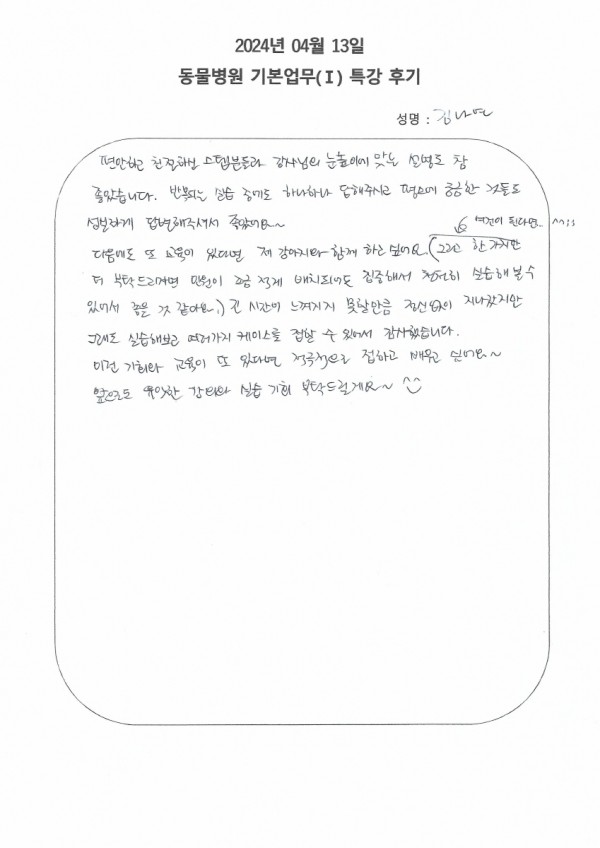 2024년 04월 13일
동물병원 기본업무(I) 특강 후기
성명 : 김나연
편안하고 친절하신 스텝분들과 강사님의 눈높이에 맞는 설명도 참
좋았습니다. 반복되는 실습 중에도 하나하나 답해주시고 평소에 궁금한 것들도
성실하게 답변해주셔서 좋았어요~
여건이 된다면.. ^^;;
다음에도 또 교육이 있다면 제 강아지와 함께 하고 싶어요. (그리고 한 가지만
더 부탁드리자면 인원이 조금 적게 배치되어도 집중해서 천천히 실습해 볼 수
있어서 좋을 것 같아요.) 긴 시간이 느껴지지 못할만큼 정신없이 지나갔지만
그래도 실습해보고 여러가지 케이스를 접할 수 있어서 감사했습니다.
이런 기회와 교육이 또 있다면 적극적으로 접하고 배우고 싶어요~
앞으로도 유익한 강의와 실습 기회 부탁드릴게요~